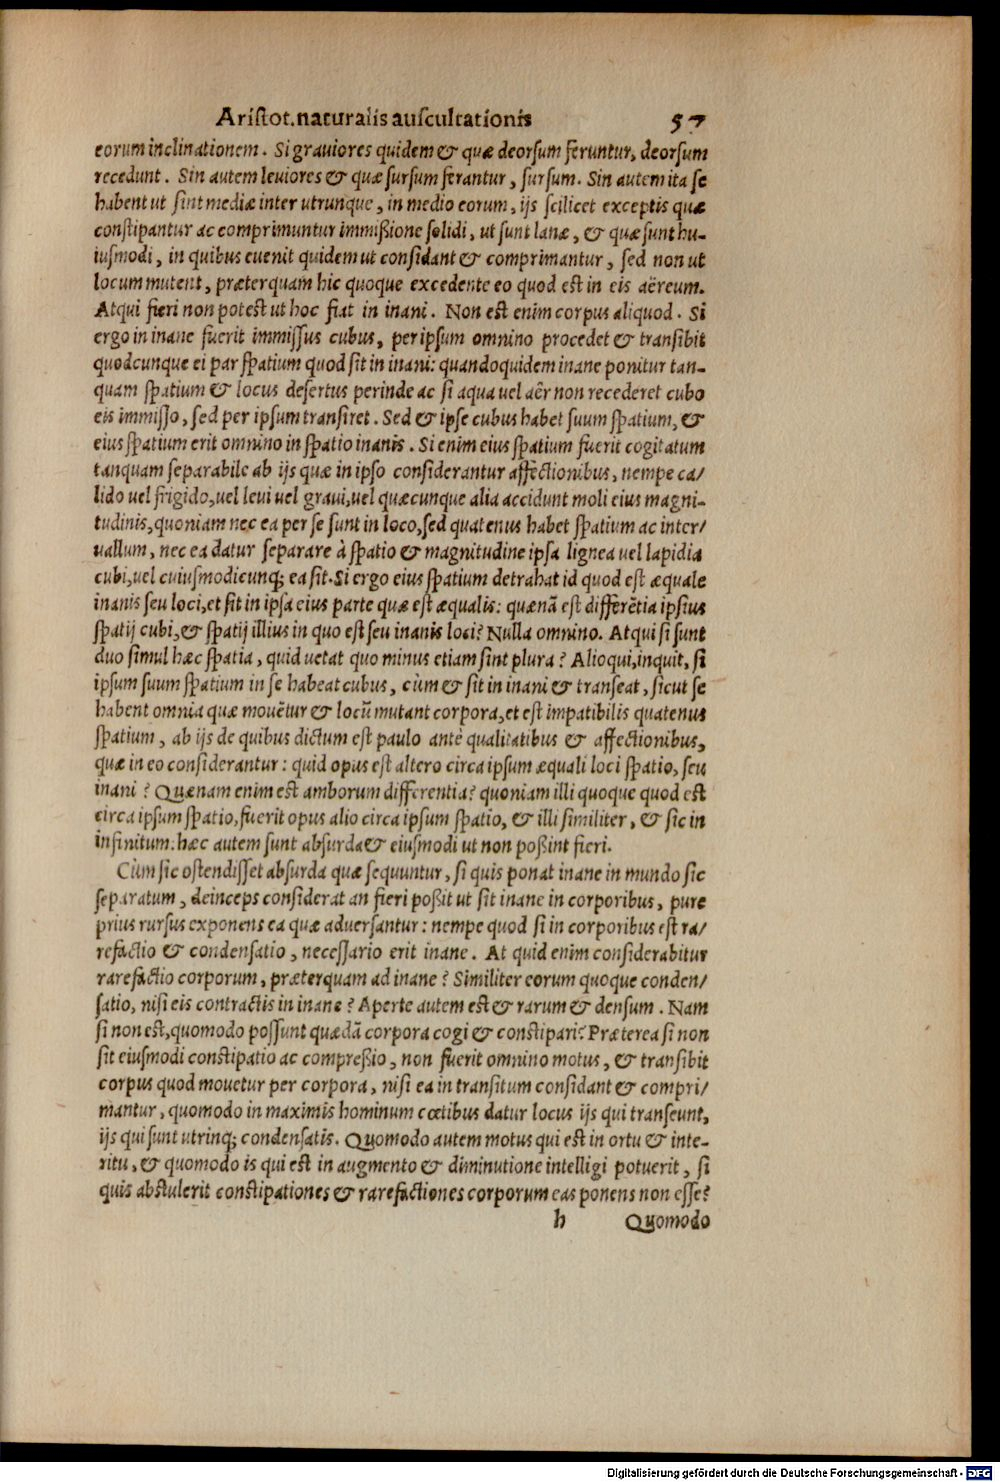 Aristot. naturalis auscultationis 57
eorum inclinationem. Si grauiores quidem & quæ deorsum feruntur, deorsum
recedunt. Sin autem leuiores & quæ sursum ferantur, sursum. Sin autem ita se
habent ut sint mediæ inter utrunque, in medio eorum, ijs scilicet exceptis quæ
constipantur ac comprimuntur immißione solidi, ut sunt lanæ, & quæ sunt hu-
iusmodi, in quibus euenit quidem ut considant & comprimantur, sed non ut
locum mutent, præterquam hic quoque excedente eo quod est in eis aëreum.
Atqui fieri non potest ut hoc fiat in inani. Non est enim corpus aliquod. Si
ergo in inane fuerit immissus cubus, per ipsum omnino procedet & transibit
quodcunque ei par spatium quod sit in inani: quandoquidem inane ponitur tan-
quam spatium & locus desertus perinde ac si aqua uel aër non recederet cubo
eis immisso, sed per ipsum transiret. Sed & ipse cubus habet suum spatium, &
eius spatium erit omnino in spatio inanis. Si enim eius spatium fuerit cogitatum
tanquam separabile ab ijs quæ in ipso considerantur affectionibus, nempe ca/
lido uel frigido, uel leui uel graui, uel quæcunque alia accidunt moli eius magni-
tudinis, quoniam nec ea per se sunt in loco, sed quatenus habet spatium ac inter/
uallum, nec ea datur separare à spatio & magnitudine ipsa lignea uel lapidia
cubi, uel cuiusmodicunq; ea sit. Si ergo eius spatium detrahat id quod est æquale
inanis seu loci, et fit in ipsa eius parte quæ est æqualis: quænā est differētia ipsius
spatij cubi, & spatij illius in quo est seu inanis loci? Nulla omnino. Atqui si sunt
duo simul hæc spatia, quid uetat quo minus etiam sint plura? Alioqui, inquit, si
ipsum suum spatium in se habeat cubus, cùm & sit in inani & transeat, sicut se
habent omnia quæ mouētur & locū mutant corpora, et est impatibilis quatenus
spatium, ab ijs de quibus dictum est paulo antè qualitatibus & affectionibus,
quæ in eo considerantur: quid opus est altero circa ipsum æquali loci spatio, seu
inani? Quænam enim est amborum differentia? quoniam illi quoque quod est
circa ipsum spatio, fuerit opus alio circa ipsum spatio, & illi similiter, & sic in
infinitum: hæc autem sunt absurda & eiusmodi ut non poßint fieri.
Cùm sic ostendisset absurda quæ sequuntur, si quis ponat inane in mundo sic
separatum, deinceps considerat an fieri poßit ut sit inane in corporibus, pure
prius rursus exponens ea quæ aduersantur: nempe quod si in corporibus est ra/
refactio & condensatio, necessario erit inane. At quid enim considerabitur
rarefactio corporum, præterquam ad inane? Similiter eorum quoque conden/
satio, nisi eis contractis in inane? Aperte autem est & rarum & densum. Nam
si non est, quomodo possunt quædā corpora cogi & constipari? Præterea si non
sit eiusmodi constipatio ac compreßio, non fuerit omnino motus, & transibit
corpus quod mouetur per corpora, nisi ea in transitum considant & compri/
mantur, quomodo in maximis hominum cœtibus datur locus ijs qui transeunt,
ijs qui sunt utrinq; condensatis. Quomodo autem motus qui est in ortu & inte-
ritu, & quomodo is qui est in augmento & diminutione intelligi potuerit, si
quis abstulerit constipationes & rarefactiones corporum eas ponens non esse?
h Quomodo
Digitalisierung gefördert durch die Deutsche Forschungsgemeinschaft - DFG